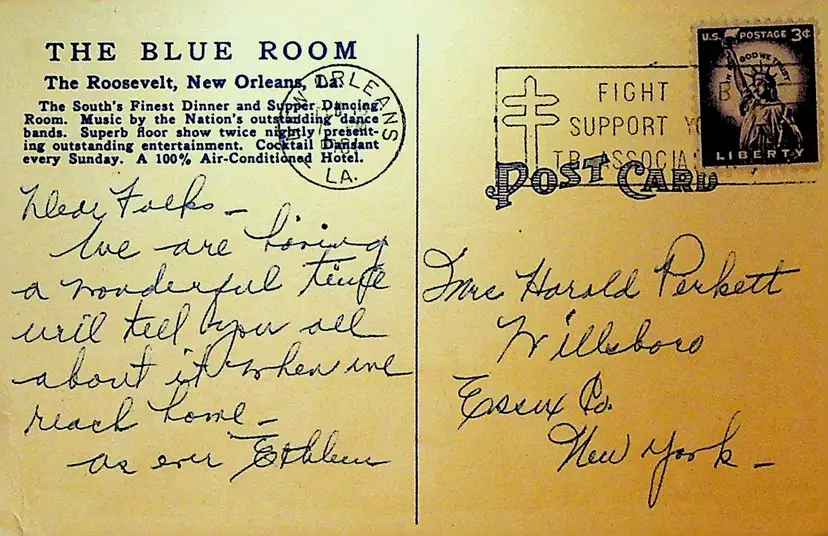 THE BLUE ROOM
The Roosevelt, New Orleans, La.
The South's Finest Dinner and Supper Dancing
Room. Music by the Nation's outstanding dance
bands. Superb floor show twice nightly present-
ing outstanding entertainment. Cocktail Dansant
every Sunday. A 100% Air-Conditioned Hotel.
NEW ORLEANS
LA.
Dear Folks -
We are having
a wonderful time
will tell you all
about it when we
reach home -
as ever
U.S. POSTAGE 3¢
IN GOD WE TRUST
LIBERTY
FIGHT
SUPPORT
TB ASSOCIA
POST CARD
Mrs Harold Perkett
Willsboro
Essex Co.
New York -